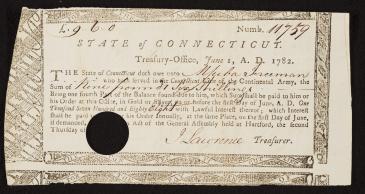 L. 9 6. 0 Numb. 11759
STATE of CONNECTICUT.
Treasury-Office, June 1, A. D. 1782.
THE State of Connecticut doth owe unto Freeman
who hath served in the Connecticut Line of the Continental Army, the
Sum of Nine pounds Six Shillings
Being one fourth Part of the Balance found due to him, which Sum shall be paid to him or
his Order at this Office, in Gold or Silver on or before the first Day of June, A. D. One
Thousand Seven Hundred and Eighty Eight with Lawful Interest thereof; which Interest
shall be paid to his Order Annually, at the same Place, on the first Day of June,
if demanded, Act of the General Assembly held at Hartford, the second
Thursday of
J Lawrence Treasurer.